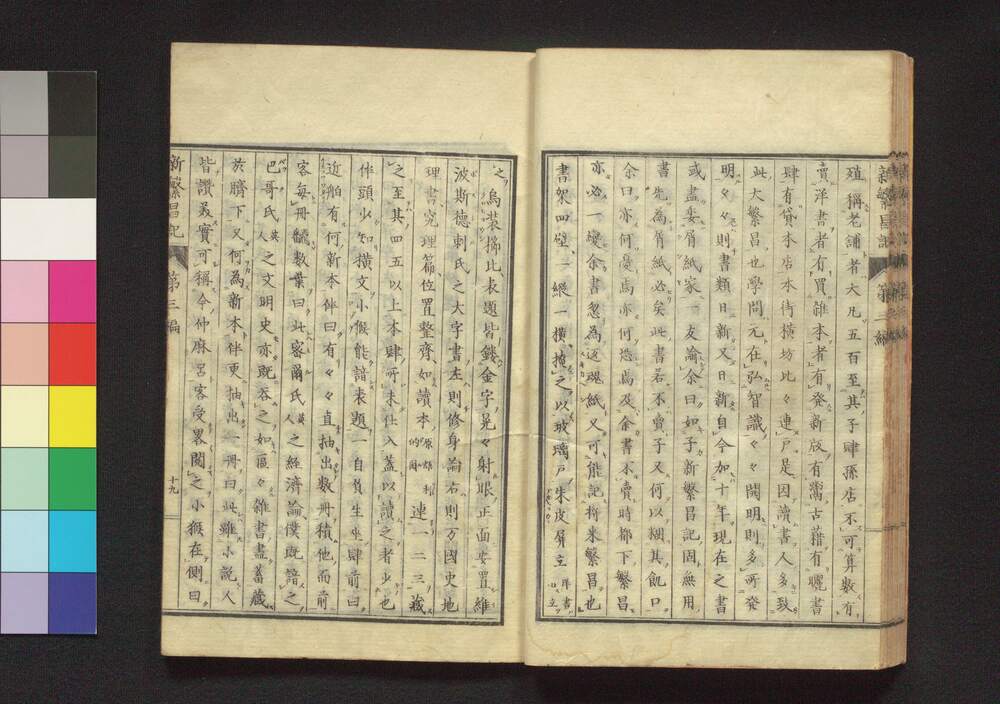 殖稱老舖者大凡五百至其子肆孫店不可算數有
賣洋書者有買雜本者有發新版有鬻古籍有曬書
肆有貸本店本街橫坊比々連戶是因讀書人多致
此大繁昌也學問元在弘智識々々開明則多所發
明々々則書類日新又日新自今加十年現在之書
或盡委屑紙家一友諭余曰如子新繁昌記固無用
書先為屑紙必矣此書若不賣子又何以糊其飢口
余曰亦何憂焉亦何造焉及余書不賣時都下繁昌
亦必一變余書忽為返魂紙又可能記將來繁昌也
書架四壁一縱一橫擁之以玻璃戶朱皮屏立洋書口立
之烏裝揚比表題皆鏤金字晃々射眼正面安置維
波斯德剌氏之大字書左則修身論右則万國史地
理書究理篇位置整齊如讀本連一二三藏
之至其四五以上本肆所未仕入蓋以讀之者少也
伴頭少知橫文小猴能諳表題一自負生坐肆前曰
近舶有何新本伴曰有々々直抽出數冊積他面前
客每冊飜數葉曰此密爾氏英人之經濟論僕既諳之
巴哥氏英人之文明史亦既吞之如區々雜書盡蓄藏
於臍下又何為新本伴更抽出一冊曰此雖小說人
皆讚最實可稱今仲麻呂客受畧閱之小猴在側曰
新繁昌記
第三編
十九